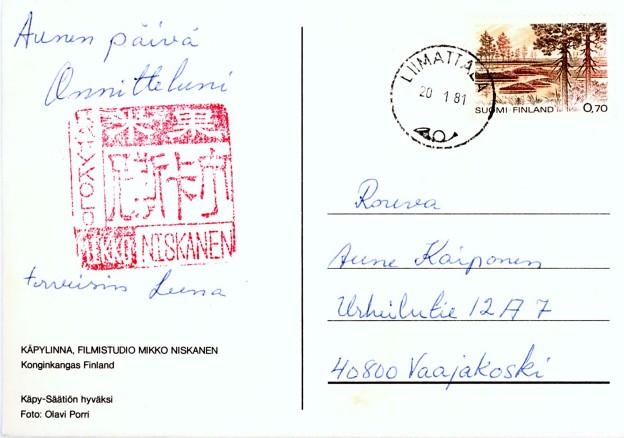 Aunen päivä
Onnitteluni
KÄXYOLO
MIKKO NISKANEN
terveisin Leena
KÄPYLINNA, FILMISTUDIO MIKKO NISKANEN
Konginkangas Finland
Käpy-Säätiön hyväksi
Foto: Olavi Porri
LIIMATTALA
20 1 81
SUOMI-FINLAND 0,70
Rouva
Aune Kaiponen
Urheilutie 12 A 7
40800 Vaajakoski